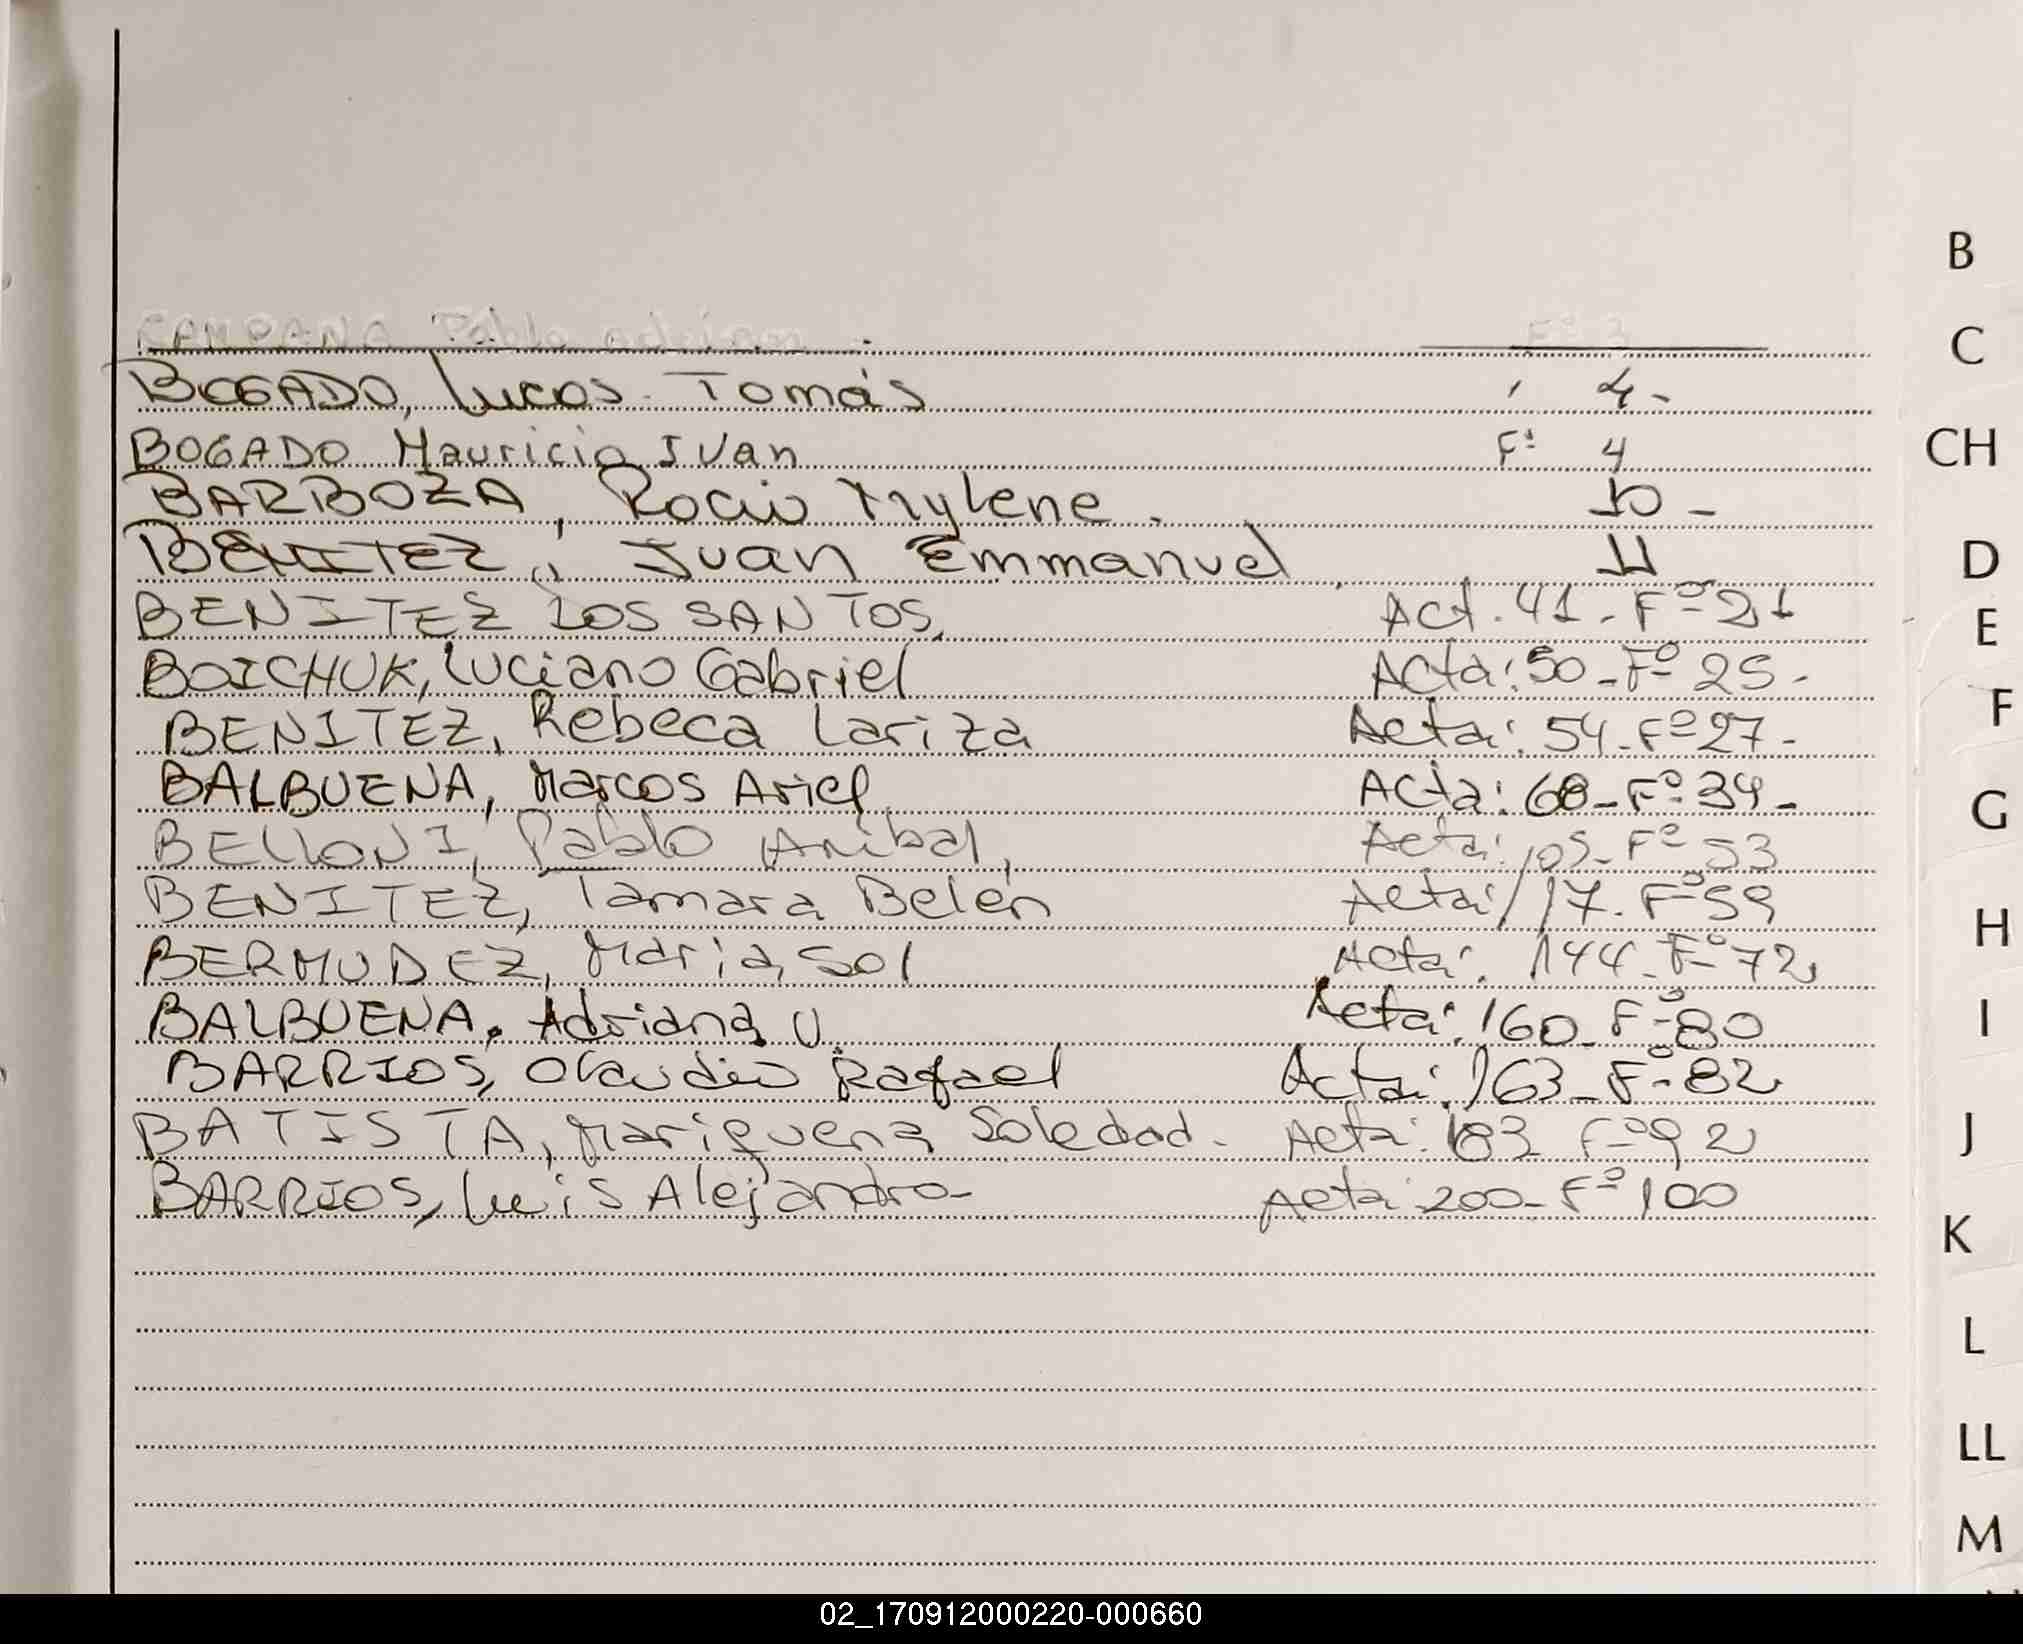 CAMPANA Pablo Adrian F° 3
BOGADO, Lucas Tomás 4-
BOGADO Mauricio Ivan F° 4
BARBOZA, Rocio Mylene. 10-
BENITEZ, Juan Emmanuel 11
BENITEZ LOS SANTOS, Act. 41- F° 21
BOICHUK, Luciano Gabriel Acta: 50-F° 25-
BENITEZ, Rebeca Lariza Acta: 54-F° 27-
BALBUENA, Marcos Ariel Acta: 68-F° 34-
BELLONI, Pablo Anibal, Acta: 105-F° 53
BENITEZ, Tamara Belén Acta: 117. F° 59
BERMUDEZ, Maria Sol Acta: 144-F° 72
BALBUENA, Adriana V. Acta: 160-F° 80
BARRIOS, Claudio Rafael Acta: 163-F° 82
BATISTA, Mariquena Soledad- Acta: 183 F° 92
BARRIOS, Luis Alejandro- Acta: 200-F° 100
B
C
CH
D
E
F
G
H
I
J
K
L
LL
M
02_170912000220-000660